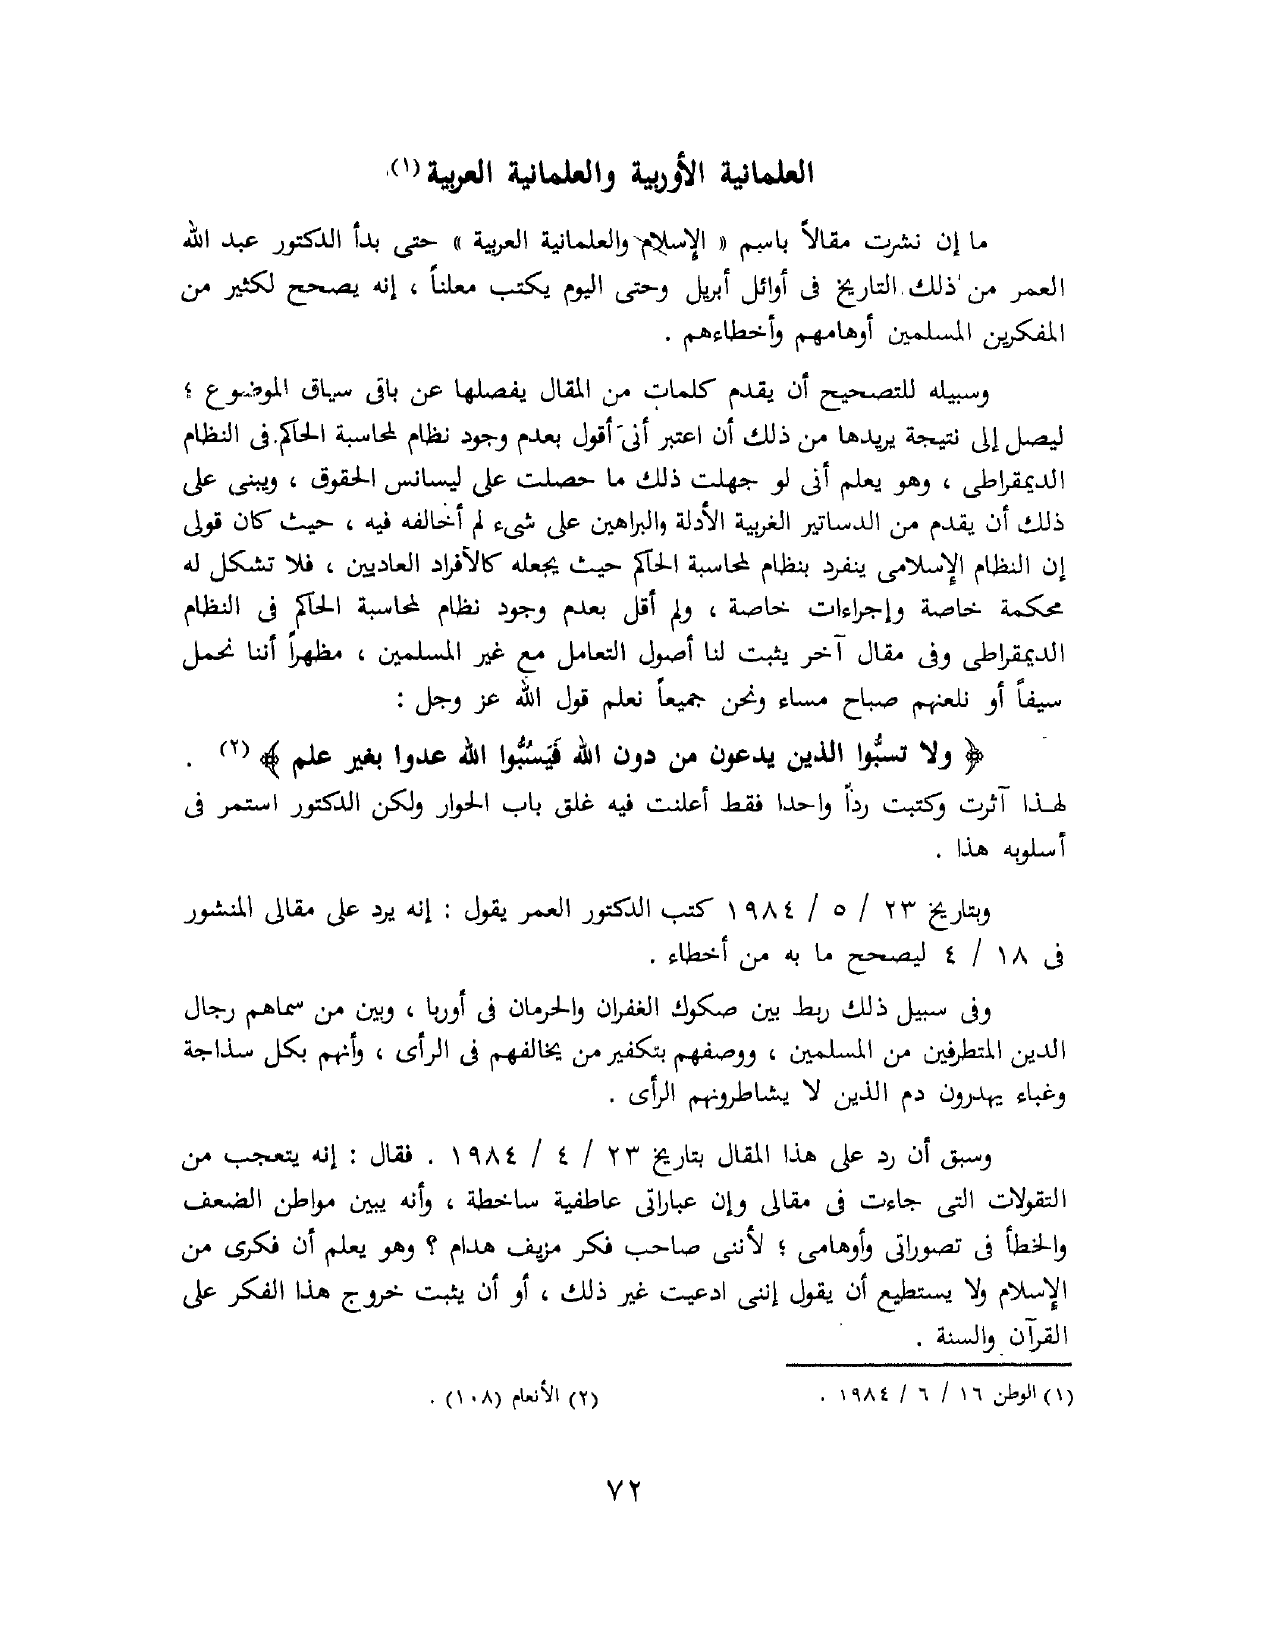 العلمانية الأوربية والعلمانية العربية (١)
ما إن نشرت مقالاً باسم « الإسلام والعلمانية العربية » حتى بدأ الدكتور عبد الله
العمر من ذلك التاريخ فى أوائل أبريل وحتى اليوم يكتب معلناً ، إنه يصحح لكثير من
المفكرين المسلمين أوهامهم وأخطاءهم .
وسبيله للتصحيح أن يقدم كلمات من المقال يفصلها عن باقى سياق الموضوع ؛
ليصل إلى نتيجة يريدها من ذلك أن اعتبر أنى أقول بعدم وجود نظام لمحاسبة الحاكم فى النظام
الديمقراطى ، وهو يعلم أنى لو جهلت ذلك ما حصلت على ليسانس الحقوق ، ويبنى على
ذلك أن يقدم من الدساتير الغربية الأدلة والبراهين على شىء لم أخالفه فيه ، حيث كان قولى
إن النظام الإسلامى ينفرد بنظام لمحاسبة الحاكم حيث يجعله كالأفراد العاديين ، فلا تشكل له
محكمة خاصة وإجراءات خاصة ، ولم أقل بعدم وجود نظام لمحاسبة الحاكم فى النظام
الديمقراطى وفى مقال آخر يثبت لنا أصول التعامل مع غير المسلمين ، مظهراً أننا نحمل
سيفاً أو نلعنهم صباح مساء ونحن جميعاً نعلم قول الله عز وجل :
﴿ ولا تسبُّوا الذين يدعون من دون الله فَيَسُبُّوا الله عدوا بغير علم ﴾ (٢) .
لهذا آثرت وكتبت رداً واحدا فقط أعلنت فيه غلق باب الحوار ولكن الدكتور استمر فى
أسلوبه هذا .
وبتاريخ ٢٣ / ٥ / ١٩٨٤ كتب الدكتور العمر يقول : إنه يرد على مقالى المنشور
فى ١٨ / ٤ ليصحح ما به من أخطاء .
وفى سبيل ذلك ربط بين صكوك الغفران والحرمان فى أوربا ، وبين من سماهم رجال
الدين المتطرفين من المسلمين ، ووصفهم بتكفير من يخالفهم فى الرأى ، وأنهم بكل سذاجة
وغباء يهدرون دم الذين لا يشاطرونهم الرأى .
وسبق أن رد على هذا المقال بتاريخ ٢٣ / ٤ / ١٩٨٤ . فقال : إنه يتعجب من
التقولات التى جاءت فى مقالى وإن عباراتى عاطفية ساخطة ، وأنه يبين مواطن الضعف
والخطأ فى تصوراتى وأوهامى ؛ لأننى صاحب فكر مزيف هدام ؟ وهو يعلم أن فكرى من
الإسلام ولا يستطيع أن يقول إننى ادعيت غير ذلك ، أو أن يثبت خروج هذا الفكر على
القرآن والسنة .
(١) الوطن ١٦ / ٦ / ١٩٨٤ . (٢) الأنعام (١٠٨) .
٧٢